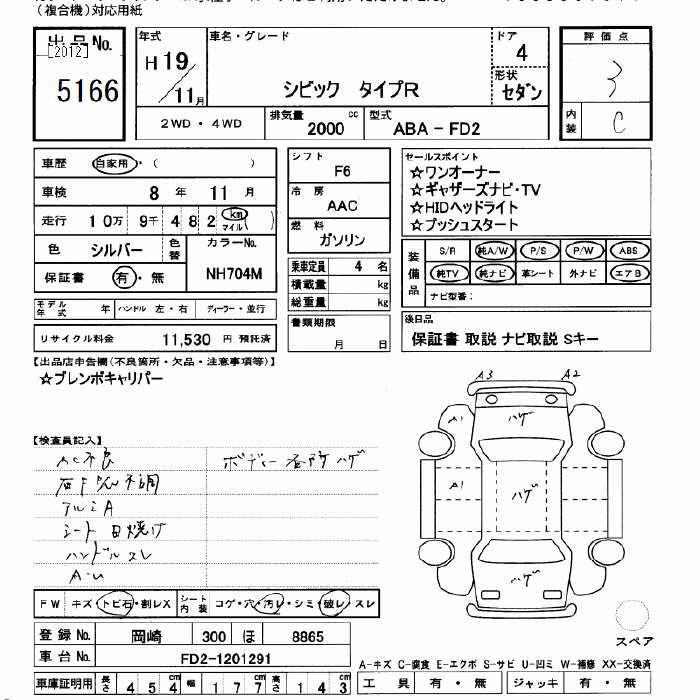 (複合機)対応用紙
出品No.
[2012]
5166
年式
H19/11月
車名・グレード
シビック タイプR
ドア
4
形状
セダン
評価点
3
内装
C
2WD・4WD
排気量 cc
2000
型式
ABA-FD2
車歴 自家用・( )
車検 8年 11月
走行 10万 9千 482 km マイル ( )
色 シルバー 色替
カラーNo.
NH704M
保証書 有・無
シフト
F6
冷房
AAC
燃料
ガソリン
乗車定員 4名
積載量 kg
総重量 kg
セールスポイント
☆ワンオーナー
☆ギャザーズナビ・TV
☆HIDヘッドライト
☆プッシュスタート
装備品
S/R 純A/W P/S P/W ABS
純TV 純ナビ 革シート 外ナビ エアB
ナビ型番:
モデル年式 年 ハンドル 左・右 ディーラー・並行
リサイクル料金 11,530 円 預託済
書類期限
月 日
後日品
保証書 取説 ナビ取説 Sキー
【出品店申告欄(不良箇所・欠品・注意事項等)】
☆ブレンボキャリパー
【検査員記入】
AC不良
ボディー各所ハゲ
石F P/W不調
アルミA
シート日焼け
ハンドルスレ
A・U
A3 A2
A1 ハゲ
A1 ハゲ
ハゲ
スペア
FW キズ・トビ石・割レX
シート内装 コゲ・穴・汚レ・シミ・破レ・スレ
登録No. 岡崎 300 ほ 8865
車台No. FD2-1201291
車庫証明用 長さ 454cm 幅 177cm 高さ 143cm
A-キズ C-腐食 E-エクボ S-サビ U-凹ミ W-補修 XX-交換済
工具 有・無 ジャッキ 有・無